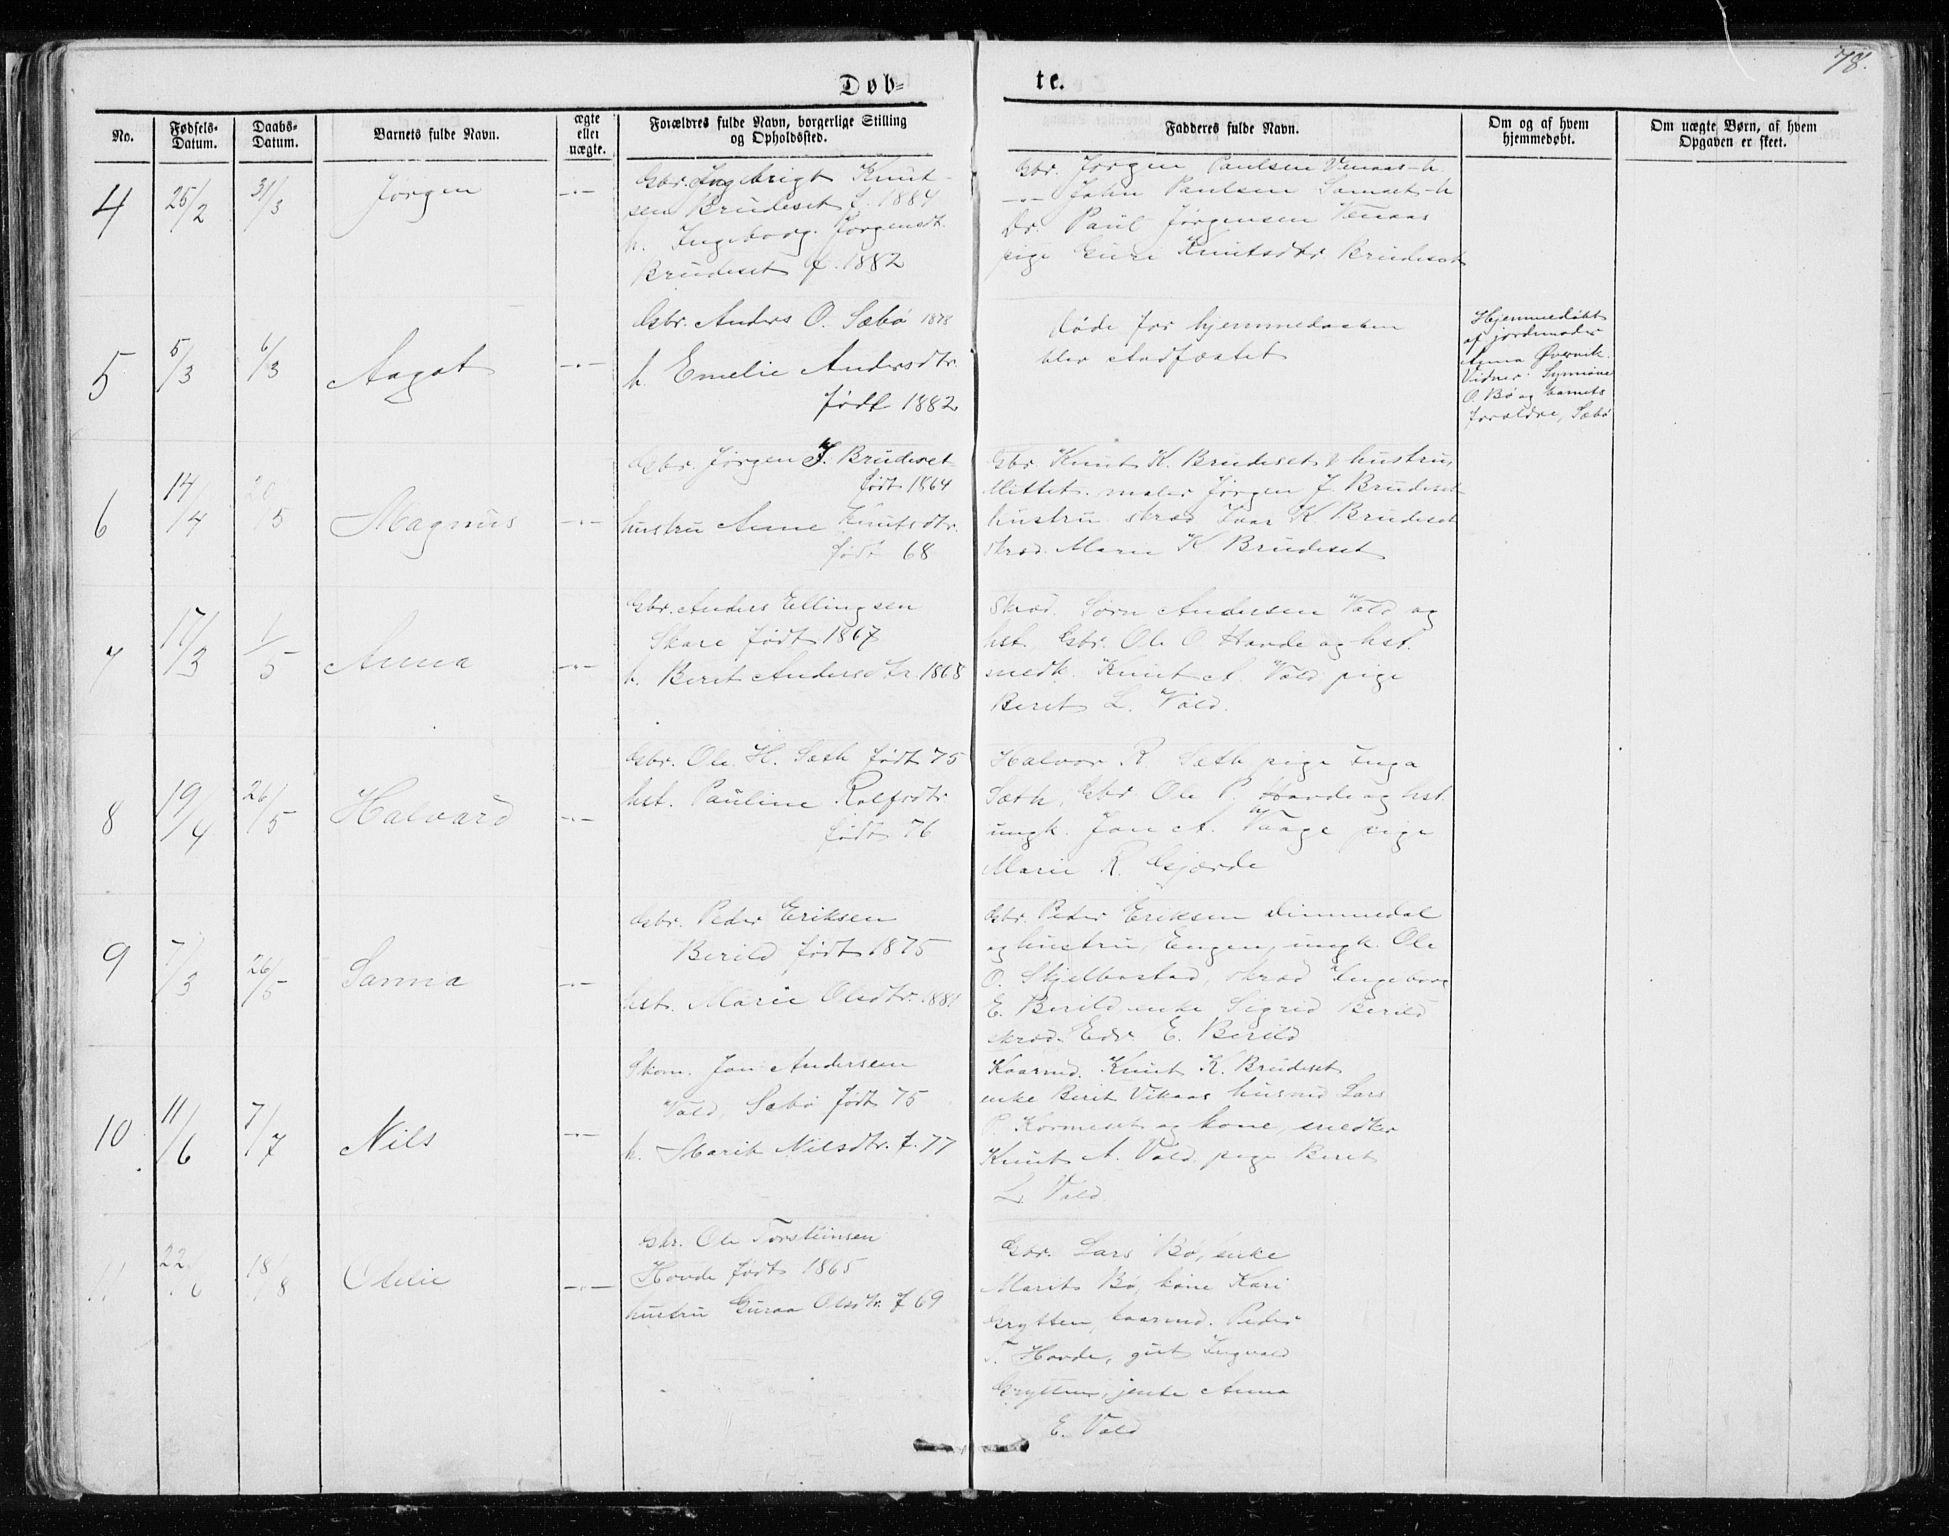 78.
Døb-
te.
No.
Fødsels-
Datum.
Daabs-
Datum.
Barnets fulde Navn.
ægte
eller
uægte.
Forældres fulde Navn, borgerlige Stilling
og Opholdssted.
Faddernes fulde Navn.
Om og af hvem
hjemmedøbt.
Om uægte Børn, af hvem
Opgaven er skeet.
4
25/2
31/3
Jørgen
-"-
Gbr. Ingebrigt Knut-
sen Brudeset f. 1884
h. Ingeborg Jørgensdt.
Brudeset f. 1882
Gbr. Jørgen Paulsen Venaas - h
-"- John Paulsen - h
Dr. Paul Jørgensen Venaas
pige Guri Knutsdtr Brudeset
5
5/3
6/3
Aagot
-"-
Gbr. Anders O. Sæbø 1878
h. Emelie Andersdtr.
født 1882
døde før hjemmedaaben
blev stadfæstet
Hjemmedøbt
af jordmoder
Anna Øvervik.
Vidner: Synnøve
O. Bø og barnets
foreldre, Sæbø
6
14/4
20/5
Magnus
-"-
Gbr. Jørgen J. Brudeset
født 1864
hustru Anne Knutsdtr.
født 68
Gbr. Knut K. Brudeset & hustru
Mittet. maler Jørgen J. Brudeset
hustru skræd Ivar K Brudeset
skræd. Marie K Brudeset
7
17/3
1/5
Anna
-"-
Gbr. Anders Ellingsen
Skare født 1867
h. Beret Andersdtr. 1868
Skræd. Søren Andersen Vold og
hst. Gbr. Ole O. Hovde og hst.
snedk. Knut A. Vold pige
Beret L. Vold.
8
19/4
26/5
Halvard
-"-
Gbr. Ole H. Sæth født 75
hst. Pauline Rolfsdtr
født 76
Halvor R. Sæth pige Inga
Sæth, Gbr Ole P. Hovde og hst.
ungk. Jon A. Vaage pige
Marie R. Gjærde
9
7/3
26/5
Sanna
-"-
Gbr. Peder Eriksen
Berild født 1875
hst. Marie Olsdtr. 1881
Gbr. Peder Eriksen Dimmedal
og hustru, Engen, ungk. Ole
O. Skjelbostad, skræd Ingeborg
E. Berild enke Sigrid Berild
skræd. Edv E. Berild
10
11/6
7/7
Nils
-"-
Skom. Jon Andersen
Vold, Sæbø født 75
h. Marit Nilsdtr. f. 77
Kaarmd. Knut K. Brudeset
enke Berit Vikaas husmd Lars
P. Kormeset og kone, snedker
Knut A. Vold pige Beret
L. Vold
11
22/6
18/8
Olvie
-"-
Gbr. Ole Torsteinsen
Hovde født 1865
hustru Guraa Olsdtr. f 69
Gbr. Lars Bø, enke
Marit Bø, kone Kari
Grytten, kaarmd. Peder
T. Hovde, gut Ingvald
Grytten, jente Anna
E. Vold